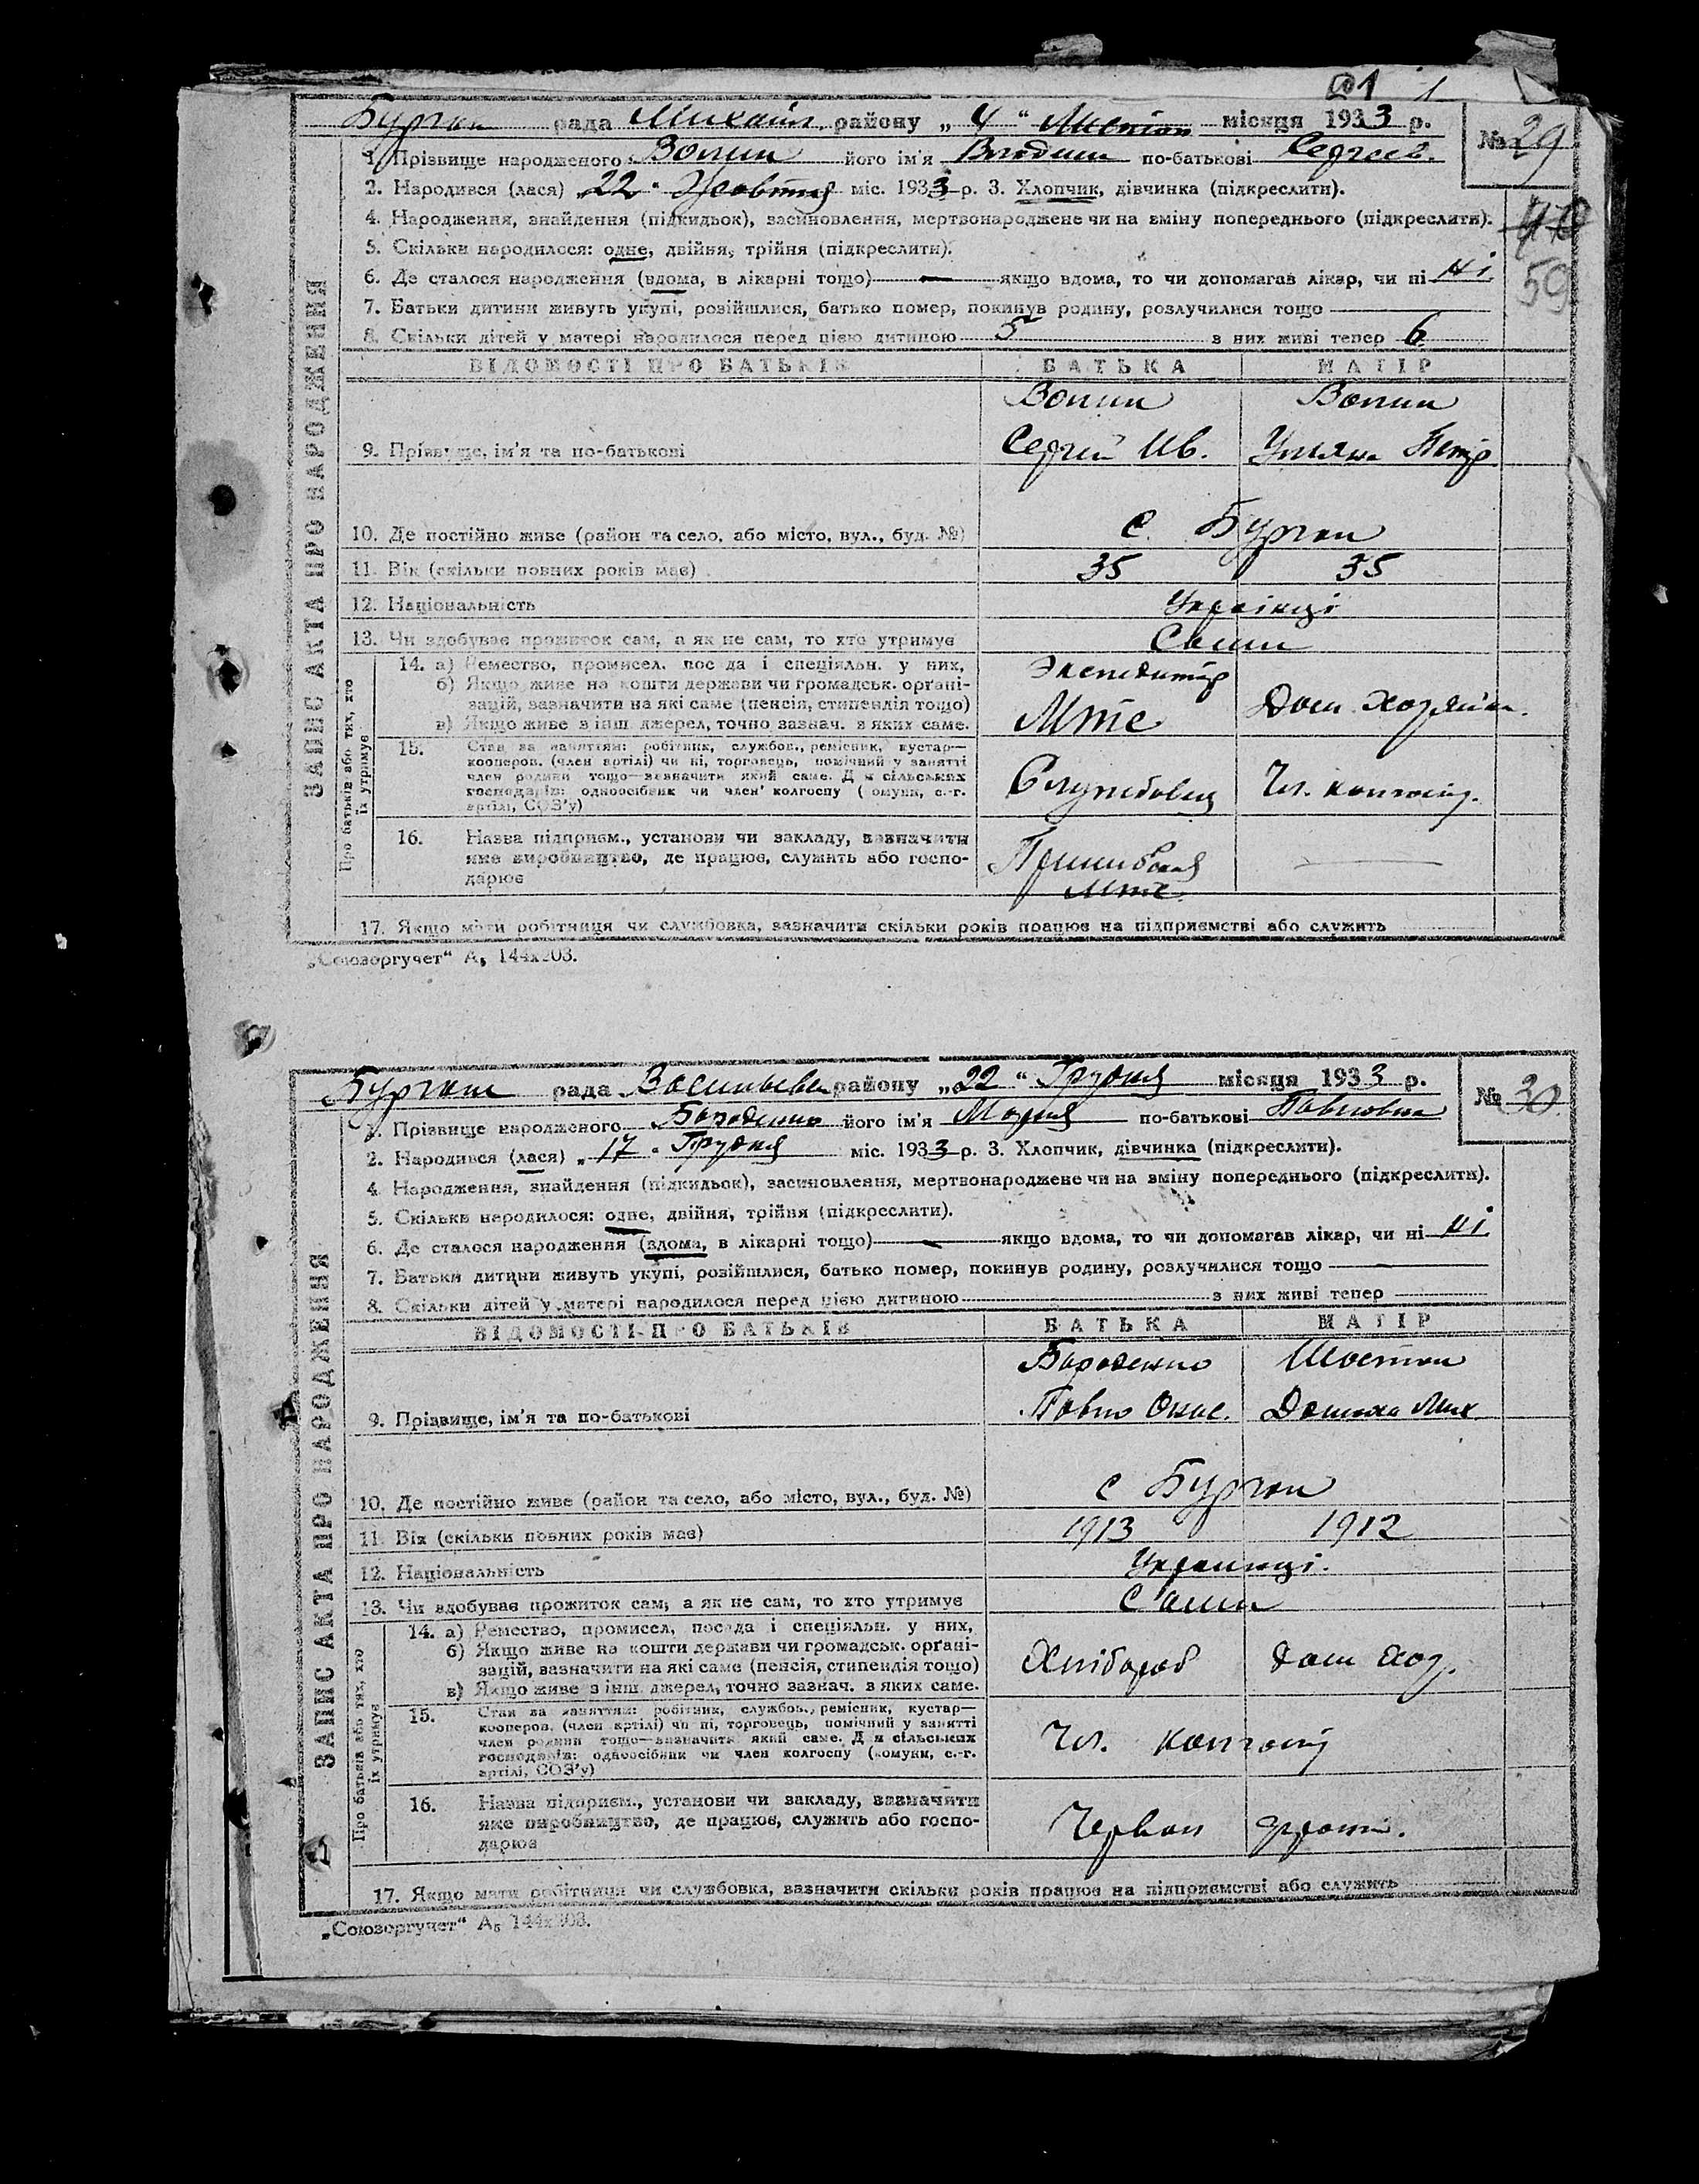 1
рада Михайл. району „4“ місяця 1933 р.
№ 29
1. Прізвище народженого його ім'я по-батькові Сергеев.
2. Народився (лася) „22“ Жовтня міс. 1933 р. 3. Хлопчик, дівчинка (підкреслити).
4. Народження, знайдення (підкидьок), засиновлення, мертвонароджене чи на зміну попереднього (підкреслити).
59
5. Скільки народилося: одне, двійня, трійня (підкреслити).
6. Де сталося народження (вдома, в лікарні тощо) — якщо вдома, то чи допомагав лікар, чи ні ні
7. Батьки дитини живуть укупі, розійшлися, батько помер, покинув родину, розлучилися тощо
8. Скільки дітей у матері народилося перед цією дитиною 5 з них живі тепер 6
ЗАПИС АКТА ПРО НАРОДЖЕННЯ
ВІДОМОСТІ ПРО БАТЬКІВ БАТЬКА МАТІР
9. Прізвище, ім'я та по-батькові Сергій Ив. Уляна Петр
10. Де постійно живе (район та село, або місто, вул., буд. №) с.
11. Вік (скільки повних років має) 35 35
12. Національність Українці
13. Чи здобуває прожиток сам, а як не сам, то хто утримує Сами
Про батьків або тих, хто їх утримує
14. а) Ремество, промисел, посада і спеціяльн. у них,
б) Якщо живе на кошти держави чи громадськ. органі-
зацій, зазначити на які саме (пенсія, стипендія тощо)
в) Якщо живе з інш. джерел, точно зазнач. з яких саме.
Экспедитор
Мтс Дом. Хозяйка.
15. Стан за заняттям: робітник, службов., ремісник, кустар—
кооперов. (член артілі) чи ні, торговець, помічний у занятті
член родини тощо—зазначити який саме. Для сільських
господарів: одноосібник чи член колгоспу (комуни, с.-г.
артілі, СОЗ'у)
Службовец Чл. колгосп.
16. Назва підприєм., установи чи закладу, зазначити
яке виробництво, де працює, служить або госпо-
дарює
Мтс.
17. Якщо мати робітниця чи службовка, зазначити скільки років працює на підприємстві або служить
„Союзоргучет“ А5 144х203.
рада Васильев району „22“ Грудня місяця 1933 р.
№ 30
1. Прізвище народженого Бороденко його ім'я Мария по-батькові Павловна
2. Народився (лася) „17“ Грудня міс. 1933 р. 3. Хлопчик, дівчинка (підкреслити).
4. Народження, знайдення (підкидьок), засиновлення, мертвонароджене чи на зміну попереднього (підкреслити).
5. Скільки народилося: одне, двійня, трійня (підкреслити).
6. Де сталося народження (вдома, в лікарні тощо) — якщо вдома, то чи допомагав лікар, чи ні ні
7. Батьки дитини живуть укупі, розійшлися, батько помер, покинув родину, розлучилися тощо —
8. Скільки дітей у матері народилося перед цією дитиною з них живі тепер
ЗАПИС АКТА ПРО НАРОДЖЕННЯ
ВІДОМОСТІ ПРО БАТЬКІВ БАТЬКА МАТІР
Бороденко
9. Прізвище, ім'я та по-батькові Павло Мих.
10. Де постійно живе (район та село, або місто, вул., буд. №) с
11. Вік (скільки повних років має) 1913 1912
12. Національність Українці.
13. Чи здобуває прожиток сам, а як не сам, то хто утримує Сами
Про батька або тих, хто їх утримує
14. а) Ремество, промисел, посада і спеціяльн. у них,
б) Якщо живе на кошти держави чи громадськ. органі-
зацій, зазначити на які саме (пенсія, стипендія тощо)
в) Якщо живе з інш. джерел, точно зазнач. з яких саме.
Хлібороб Дом Хоз.
15. Стан за заняттям: робітник, службов., ремісник, кустар—
кооперов. (член артілі) чи ні, торговець, помічний у занятті
член родини тощо—зазначити який саме. Для сільських
господарів: одноосібник чи член колгоспу (комуни, с.-г.
артілі, СОЗ'у)
Чл. колгосп
16. Назва підприєм., установи чи закладу, зазначити
яке виробництво, де працює, служить або госпо-
дарює
Червон
17. Якщо мати робітниця чи службовка, зазначити скільки років працює на підприємстві або служить
„Союзоргучет“ А5 144х203.